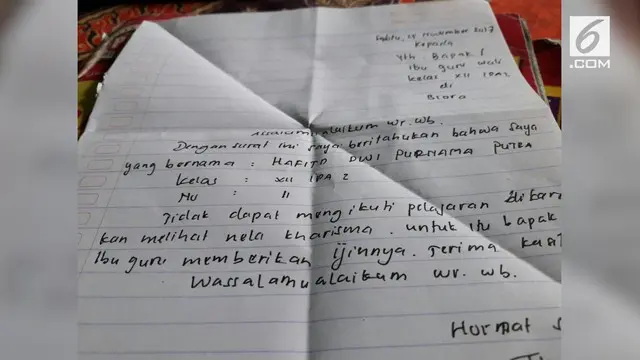 Sabtu, 25 November 2017
Kepada
Yth. Bapak /
Ibu guru wali
kelas XII IPA 2
di
Blora
Assalamualaikum wr. wb.
Dengan surat ini saya beritahukan bahwa saya
yang bernama : HAFITD DWI PURNAMA PUTRA
kelas : XII IPA 2
No : 11
Tidak dapat mengikuti pelajaran dikare
kan melihat nela kharisma. untuk itu bapak
Ibu guru memberikan ijinnya. Terima kasi
Wassalamualaikum wr. wb.
Hormat s
6
.COM